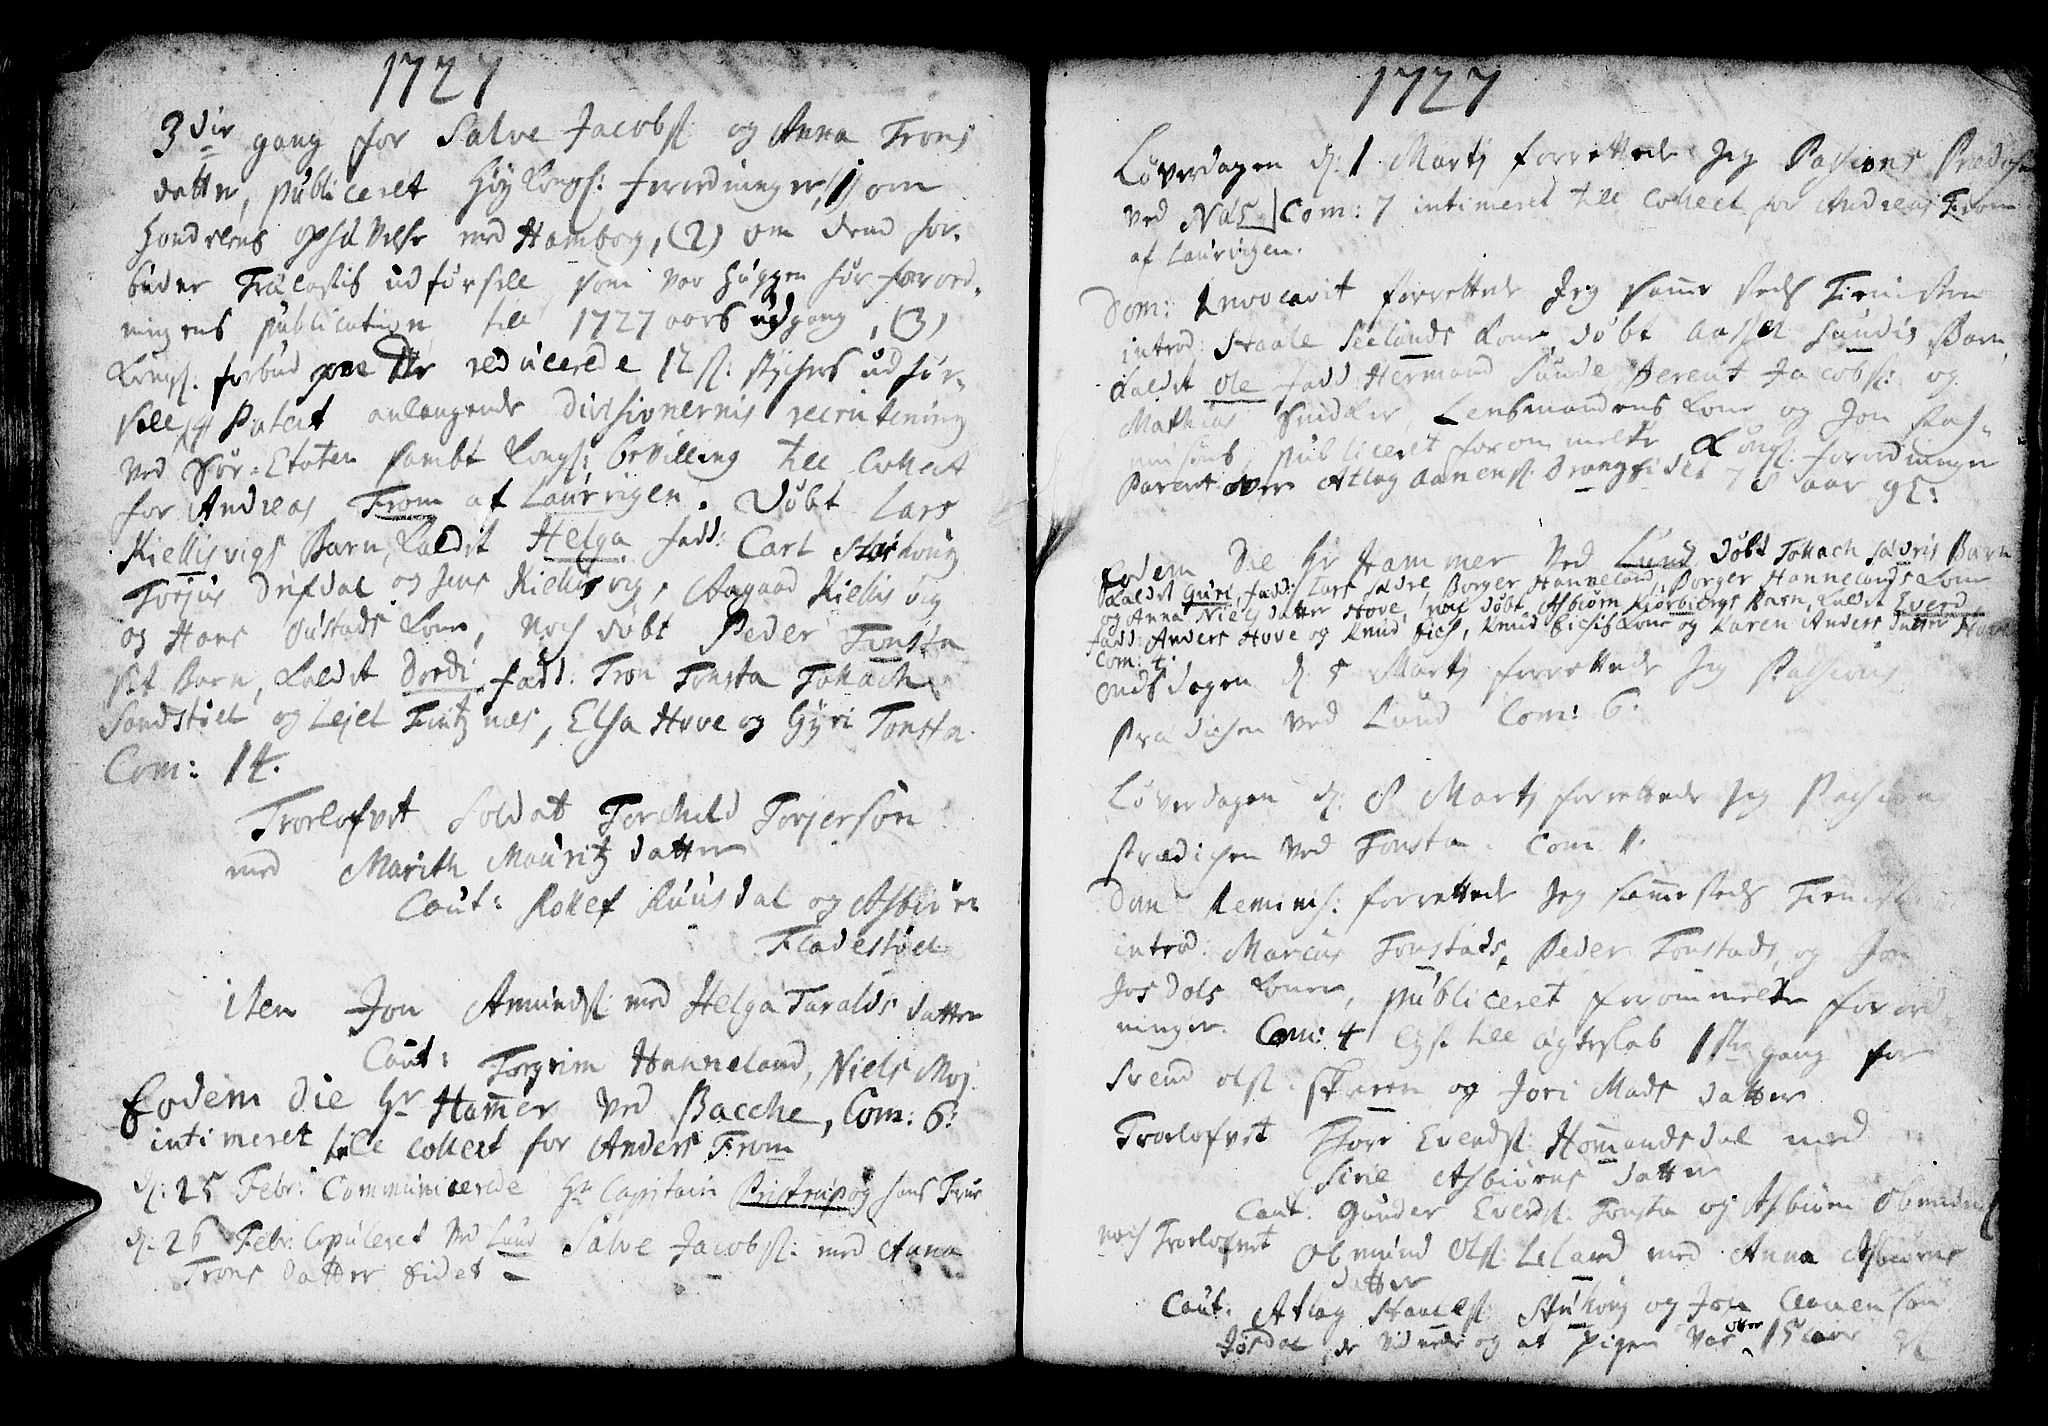 1727
3die gang for Salve Jacobs: og Anna Trons
datter, publiceret Høy Kongs: forordninger, 1) om
handelens ophævelse med Hamborg, (2) om dend for-
budne Trælastis udførselle som var huggen før forord-
ningens publication till 1727 aars udgang, (3)
Kongs: forbud paa de reducerede 12 s: stychers udfør-
selle, (4) Patent anlangende Divisionernis recrutering
ved Søe-Etaten sambt Kongs: bevilling till Collect
for Andreas From af Laurvigen. Døbt Lars
Kiellisvigs Barn, kaldet Helga fadd: Carl
Torjus Drifdal og Jens Kiellisvig, Aagaad Kiellisvig
og Hans Øustads Kone, noch døbt Peder Tonsta
sit Barn, kaldet Dordi fadd: Tron Tonsta Tollach
Sandstøel og Lejel Tintznes, Elsa Hove og Gyri Tonsta
Com: 14.
Troelofvet Soldat Torchild Torjersøn
med Marith Mauritz datter
Caut: Rollef Ruusdal og Asbiøn
Fladestøel
iten Jon Amunds: med Helga Taralds datter
Caut: Torgrim Hanneland, Niels Moj
Eodem Die Hr Hammer ved Bacche, Com: 6:
intimeret till Collect for Anders From
d: 25 Febr: Communicerede Hr Capitain Pristrup og hans Frue
d: 26 Febr: Copuleret ved Lund Salve Jacobs: med Anna
Trons datter Eidet
1727
Løverdagen d: 1 Martj forrettede Jeg Passions Prædichen
ved Næs Com: 7 intimeret till Collect for Andreas From
af Laurvigen.
Dom: Invocavit forrettede Jeg samme steds Tienisten
introd: Staale Seelands Kone, døbt Aassel Sundis Barn
kaldet Ole fadd Hermand Sunde Berent Jacobs: og
Mathias Snidker, Lensmandens Kone og Jon
publiceret forommelte Kongs: forordninger
Parent over Atlag Aanens: Drangsidet 78 aar gl:
Eodem Die Hr Hammer ved Lund døbt Tollach Sædris Barn
kaldet Guri, fadd: Lars Sædre, Borger Hanneland, Borger Hannelands Kone
og Anna Niels datter Hove, noch døbt Asbiørn Kiørbiergs Barn, kaldet Everd
fadd: Anders Hove og Knud Eich, Knud Eichis Kone og Karen Anders datter Hove
Com: 4:
Onsdagen d: 5 Martj forrettede Jeg Passions
Prædichen ved Lund Com: 6:
Løverdagen d: 8 Martj forrettede Jeg Passions
Prædichen ved Tonsta. Com 11.
Dom Reminis: forrettede Jeg samme steds Tienisten
introd: Marcus Tonstads, Peder Tonstads, og Jon
Josdals Koner, publiceret forommelte forord
ninger. Com: 4 lyst till ægteskab 1ste gang for
Svend Ols: Skaren og Jori Mads datter
Troelofvet Thore Everds: Hommandsdal med
Sirie Asbiørns datter
Caut: Gunder Everds: Tonsta og Asbiøn
noch Troelofvet Olmund Ols: Leland med Anna Asbiørns
datter
Caut: Atlag Staales: og Jon Aanensøn
Josdal, de vidnede og at Pigen var ofver 15 aar gl